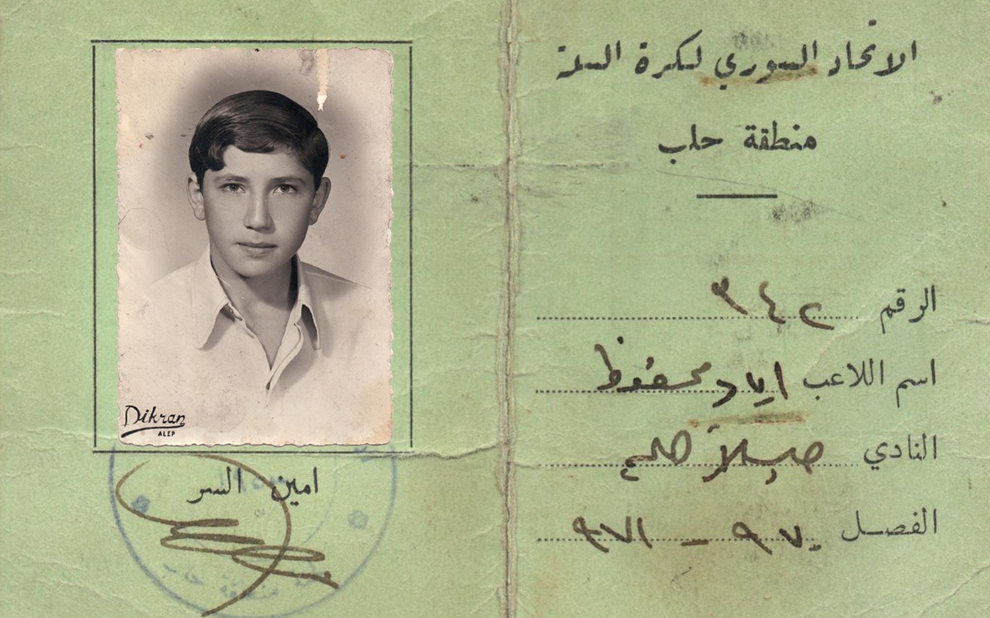 الاتحاد السوري لكرة السلة
منطقة حلب
الرقم
اسم اللاعب اياد محفوظ
النادي
الفصل ٩٧٠ - ٩٧١
Dikran
ALEP
امين السر
منطقة حلب